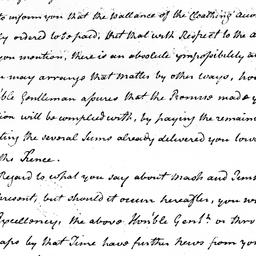 to inform you that the Ballance of the Cloathing Acco
ly ordered to be paid; But that with Respect to the a
you mention, there is an absolute impossibility at
u may arrange that Matter by other ways, how
ble Gentleman assures that the Promise made y
tion will be complied with, by paying the remain
ting the several Sums already delivered you tow
the Fence.
Regard to what you say about Mash and
present, but should it occur hereafter, you w
Excellency, the above Hon'ble Gent. or thro
aps by that Time have further news from you